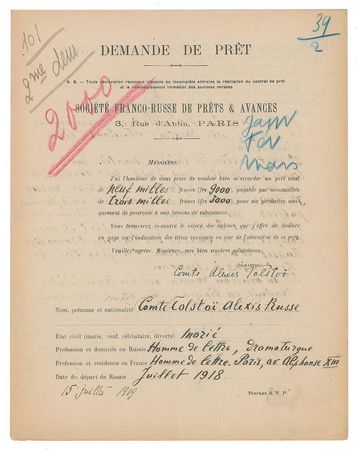 101
2me dem.
39
2
DEMANDE DE PRÊT
N. B. – Toute déclaration reconnue inexacte ou incomplète entraîne la résiliation du contrat de prêt
et le remboursement immédiat des sommes versées
2000
SOCIÉTÉ FRANCO-RUSSE DE PRÊTS & AVANCES
3, Rue d'Antin, PARIS
Janv
Fev
Mars
MESSIEURS
J'ai l'honneur de vous prier de vouloir bien m'accorder un prêt total
de neuf milles francs (frs 9000 payable par mensualités
de trois milles francs (frs 3000 pour me permettre uniquement
quement de pourvoir à mes besoins de subsistance.
Vous trouverez ci-contre le relevé des valeurs que j'offre de donner
en gage ou l'indication des titres invoqués en vue de l'obtention de ce prêt.
Veuillez agréer, Messieurs, mes bien sincères salutations.
SIGNATURE
Comte Alexis Tolstoï
Nom, prénoms et nationalité Comte Tolstoï Alexis Russe
État civil (marié, veuf, célibataire, divorcé) marié
Profession et domicile en Russie Homme de lettre, dramaturgue
Profession et résidence en France Homme de lettre. Paris, av Alphonse XIII
Date du départ de Russie Juillet 1918
15 juillet 1919
TOURNEZ S. V. P.